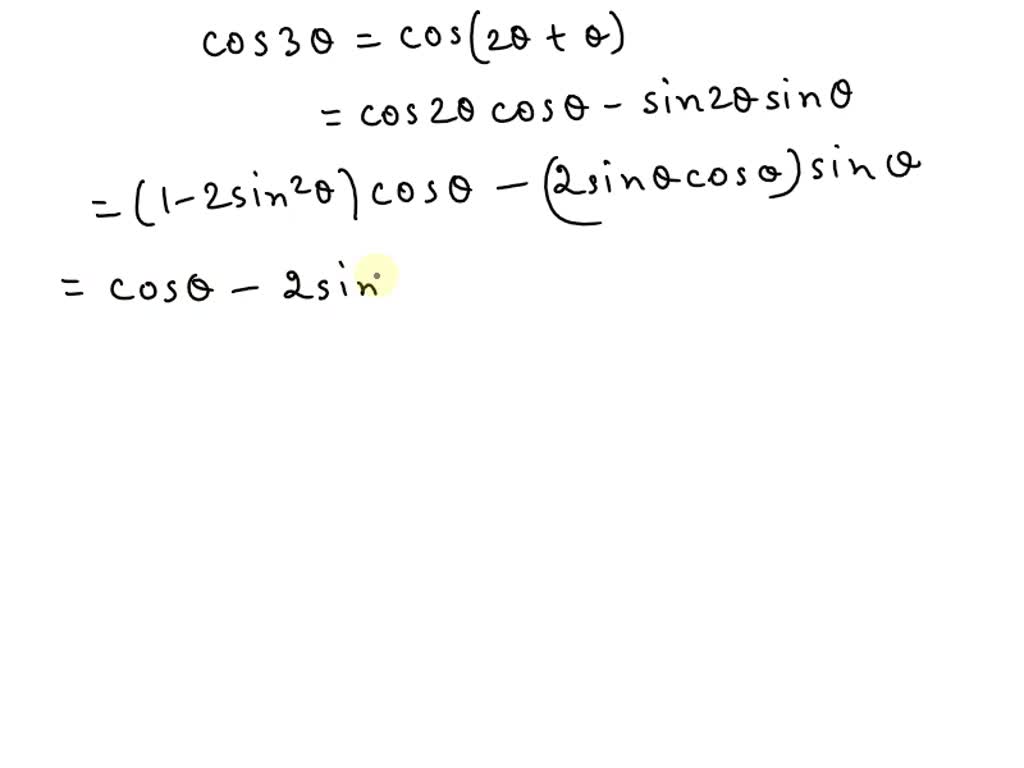 cos3θ = cos(2θ + θ)
= cos2θ cosθ - sin2θ sinθ
= (1-2sin²θ) cosθ - (2sinθcosθ) sinθ
= cosθ - 2sin